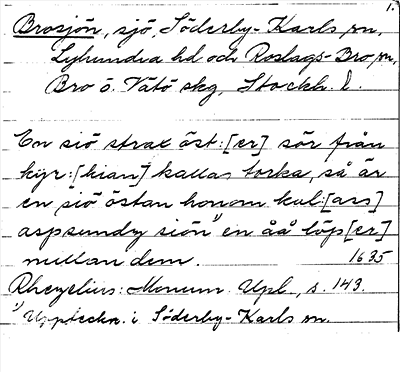 1.
Brosjön, sjö, Söderby-Karls sn,
Lyhundra hd och Roslags-Bro sn,
Bro o. Vätö skg, Stockh. l.
En siö strax öst:[er] sör från
kyr:[kian] kallas torka, så är
en siö östan honom kul:[ars]
aspsundz siön¹⁾ en åå löp[er]
mullan dem. 1635
Rhezelius: Monum. Upl., s. 143.
¹⁾ Uppteckn. i Söderby-Karls sn.